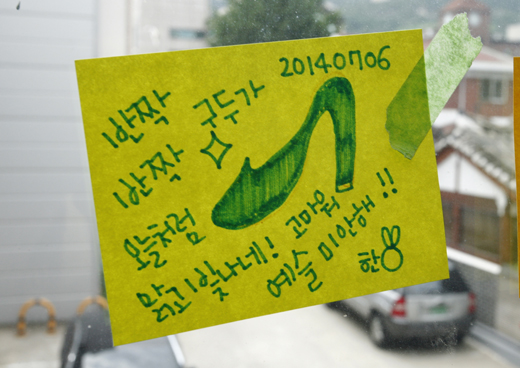 20140706
반짝 구두가
반짝
오늘처럼
맑고 빛나네! 고마워
예슬 미안해 !!
한